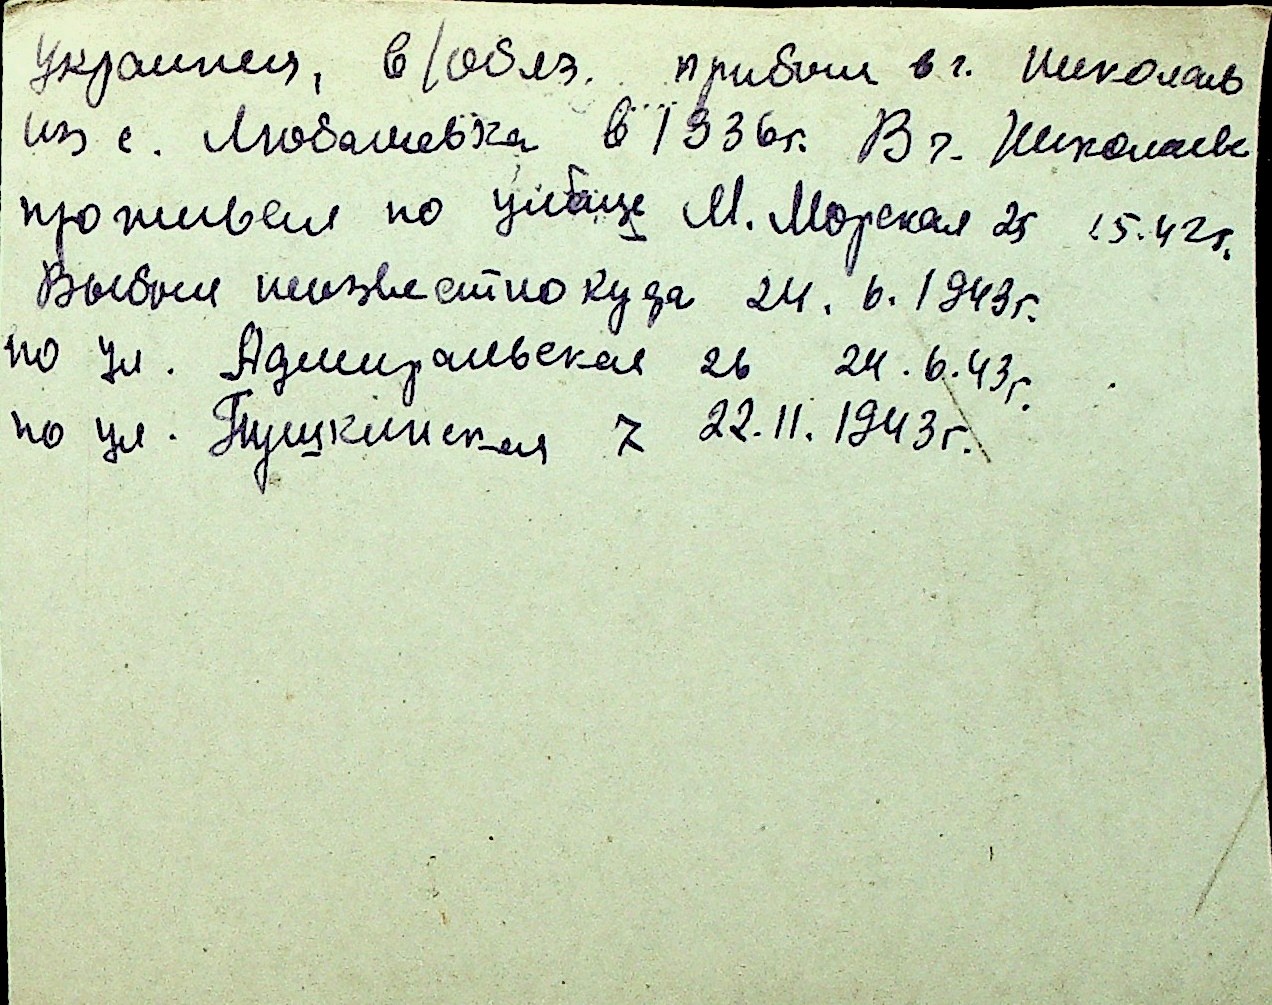 Украинец, в/обяз. прибыл в г. Николаев
из с. Любашевка в 1936г. В г. Николаеве
проживал по улице М. Морская 25 15.42г.
Выбыл неизвестно куда 24. 6. 1943г.
по ул. Адмиральская 26 24.6.43г.
по ул. Пушкинская 7 22.11.1943г.